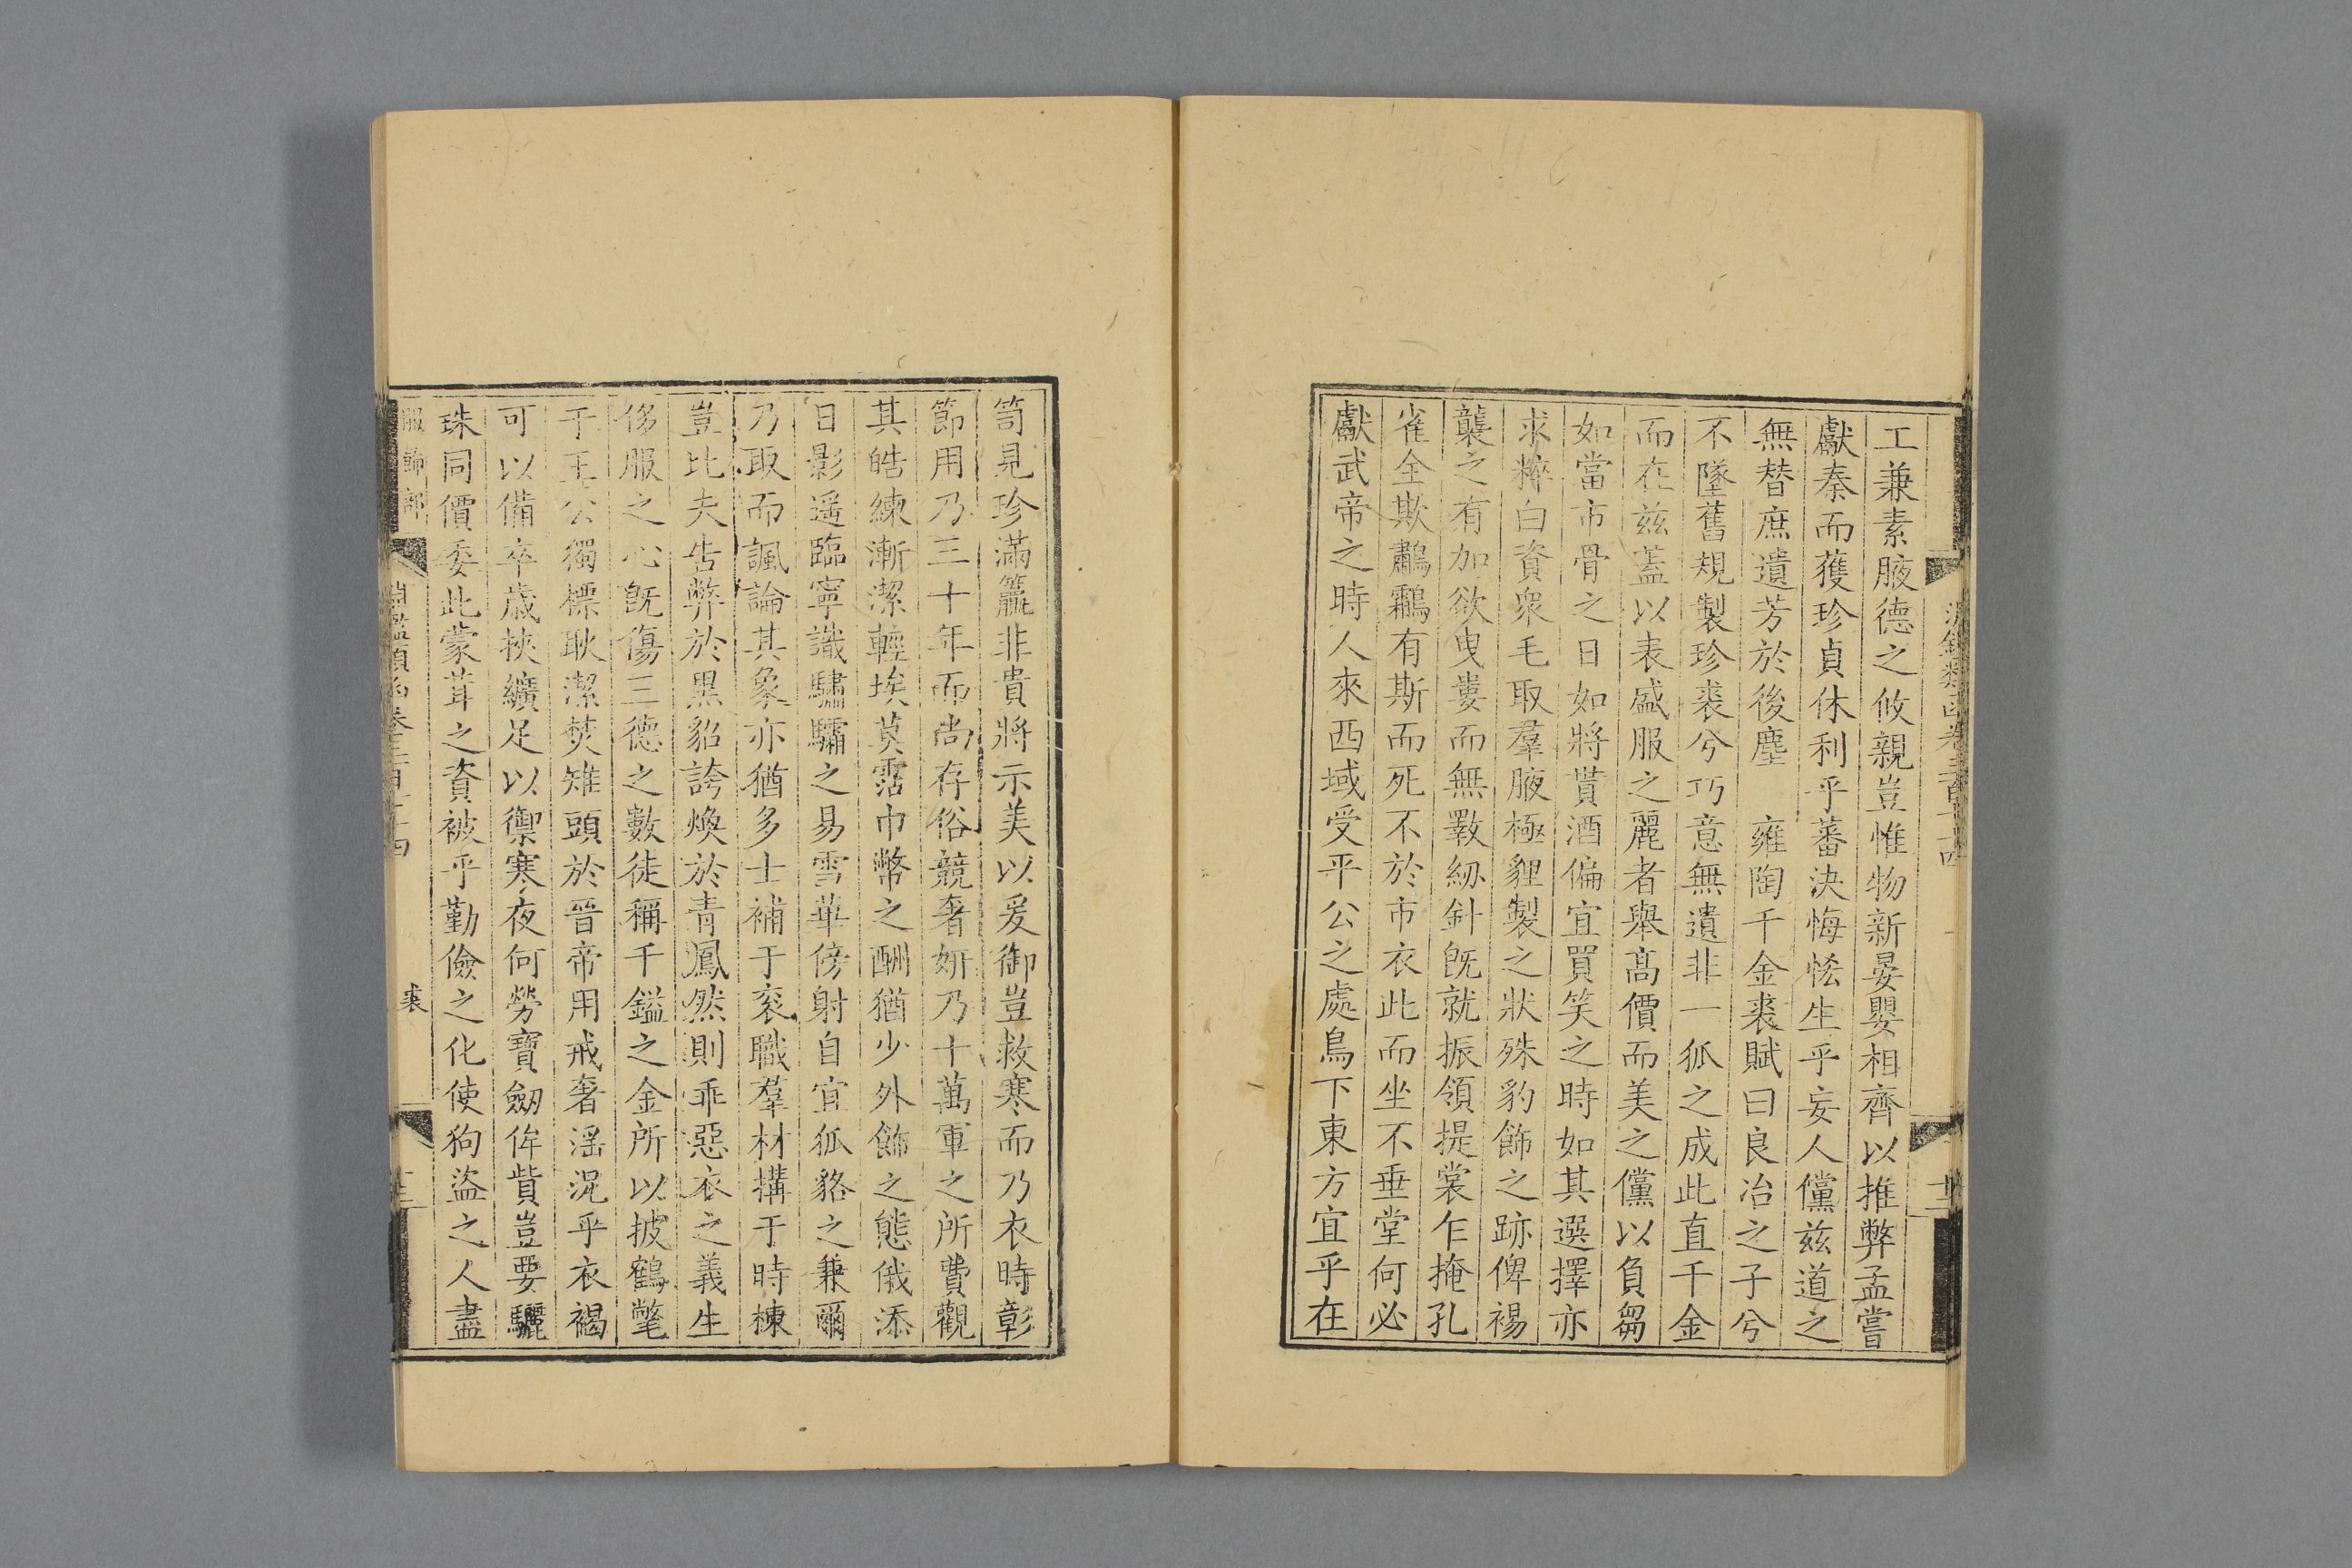 工兼素腋德之攸親豈惟物新晏嬰相齊以推弊孟嘗
獻秦而獲珍貞休利乎蕃決悔恡生乎妄人儻兹道之
無替庶遺芳於後塵　雍陶千金裘賦曰良冶之子兮
不墜舊規製珍裘兮巧意無遺非一狐之成此直千金
而在兹蓋以表盛服之麗者舉髙價而美之儻以負芻
如當市骨之日如將貰酒偏宜買笑之時如其選擇亦
求粹白資衆毛取羣腋極貍製之狀殊豹飾之跡俾裼
襲之有加欲曳婁而無斁紉針既就振領提裳乍掩孔
雀全欺鸘有斯而死不於市衣此而坐不垂堂何必
獻武帝之時人來西域受平公之處鳥下東方宜乎在
笥見珍滿籝非貴將示美以爰御豈救寒而乃衣時彰
節用乃三十年而尚存俗競奢妍乃十萬軍之所費觀
其皓練漸潔輕埃莫霑巾幣之酬猶少外飾之態俄添
日影遥臨寧識驌驦之易雪華傍射自宜狐貉之兼爾
乃取而諷論其象亦猶多士補于衮職羣材搆于時棟
豈比夫告弊於黒貂誇煥於青鳳然則乖惡衣之義生
侈服之心既傷三德之數徒稱千鎰之金所以披鶴氅
于王公獨標耿潔焚雉頭於晉帝用戒奢滛況乎衣褐
可以備卒歳挾纊足以禦寒夜何勞寶劔侔貲豈要驪
珠同價委此蒙茸之資被乎勤儉之化使狗盜之人盡
服飾部
裘